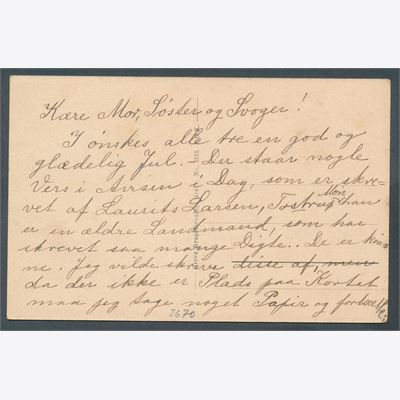 Kære Mor, Søster og Svoger!
I ønskes alle tre en god og
glædelig Jul. Der staar nogle
Vers i Avisin i Dag, som er skre-
vet af Laurits Larsen, Tostrup Møn, han
er en ældre Landmand, som har
skrevet saa mange Digte. De er kin-
ne. Jeg vilde skrive disse af, men
da der ikke er Plads paa Kortet
maa jeg tage noget Papir og
2670